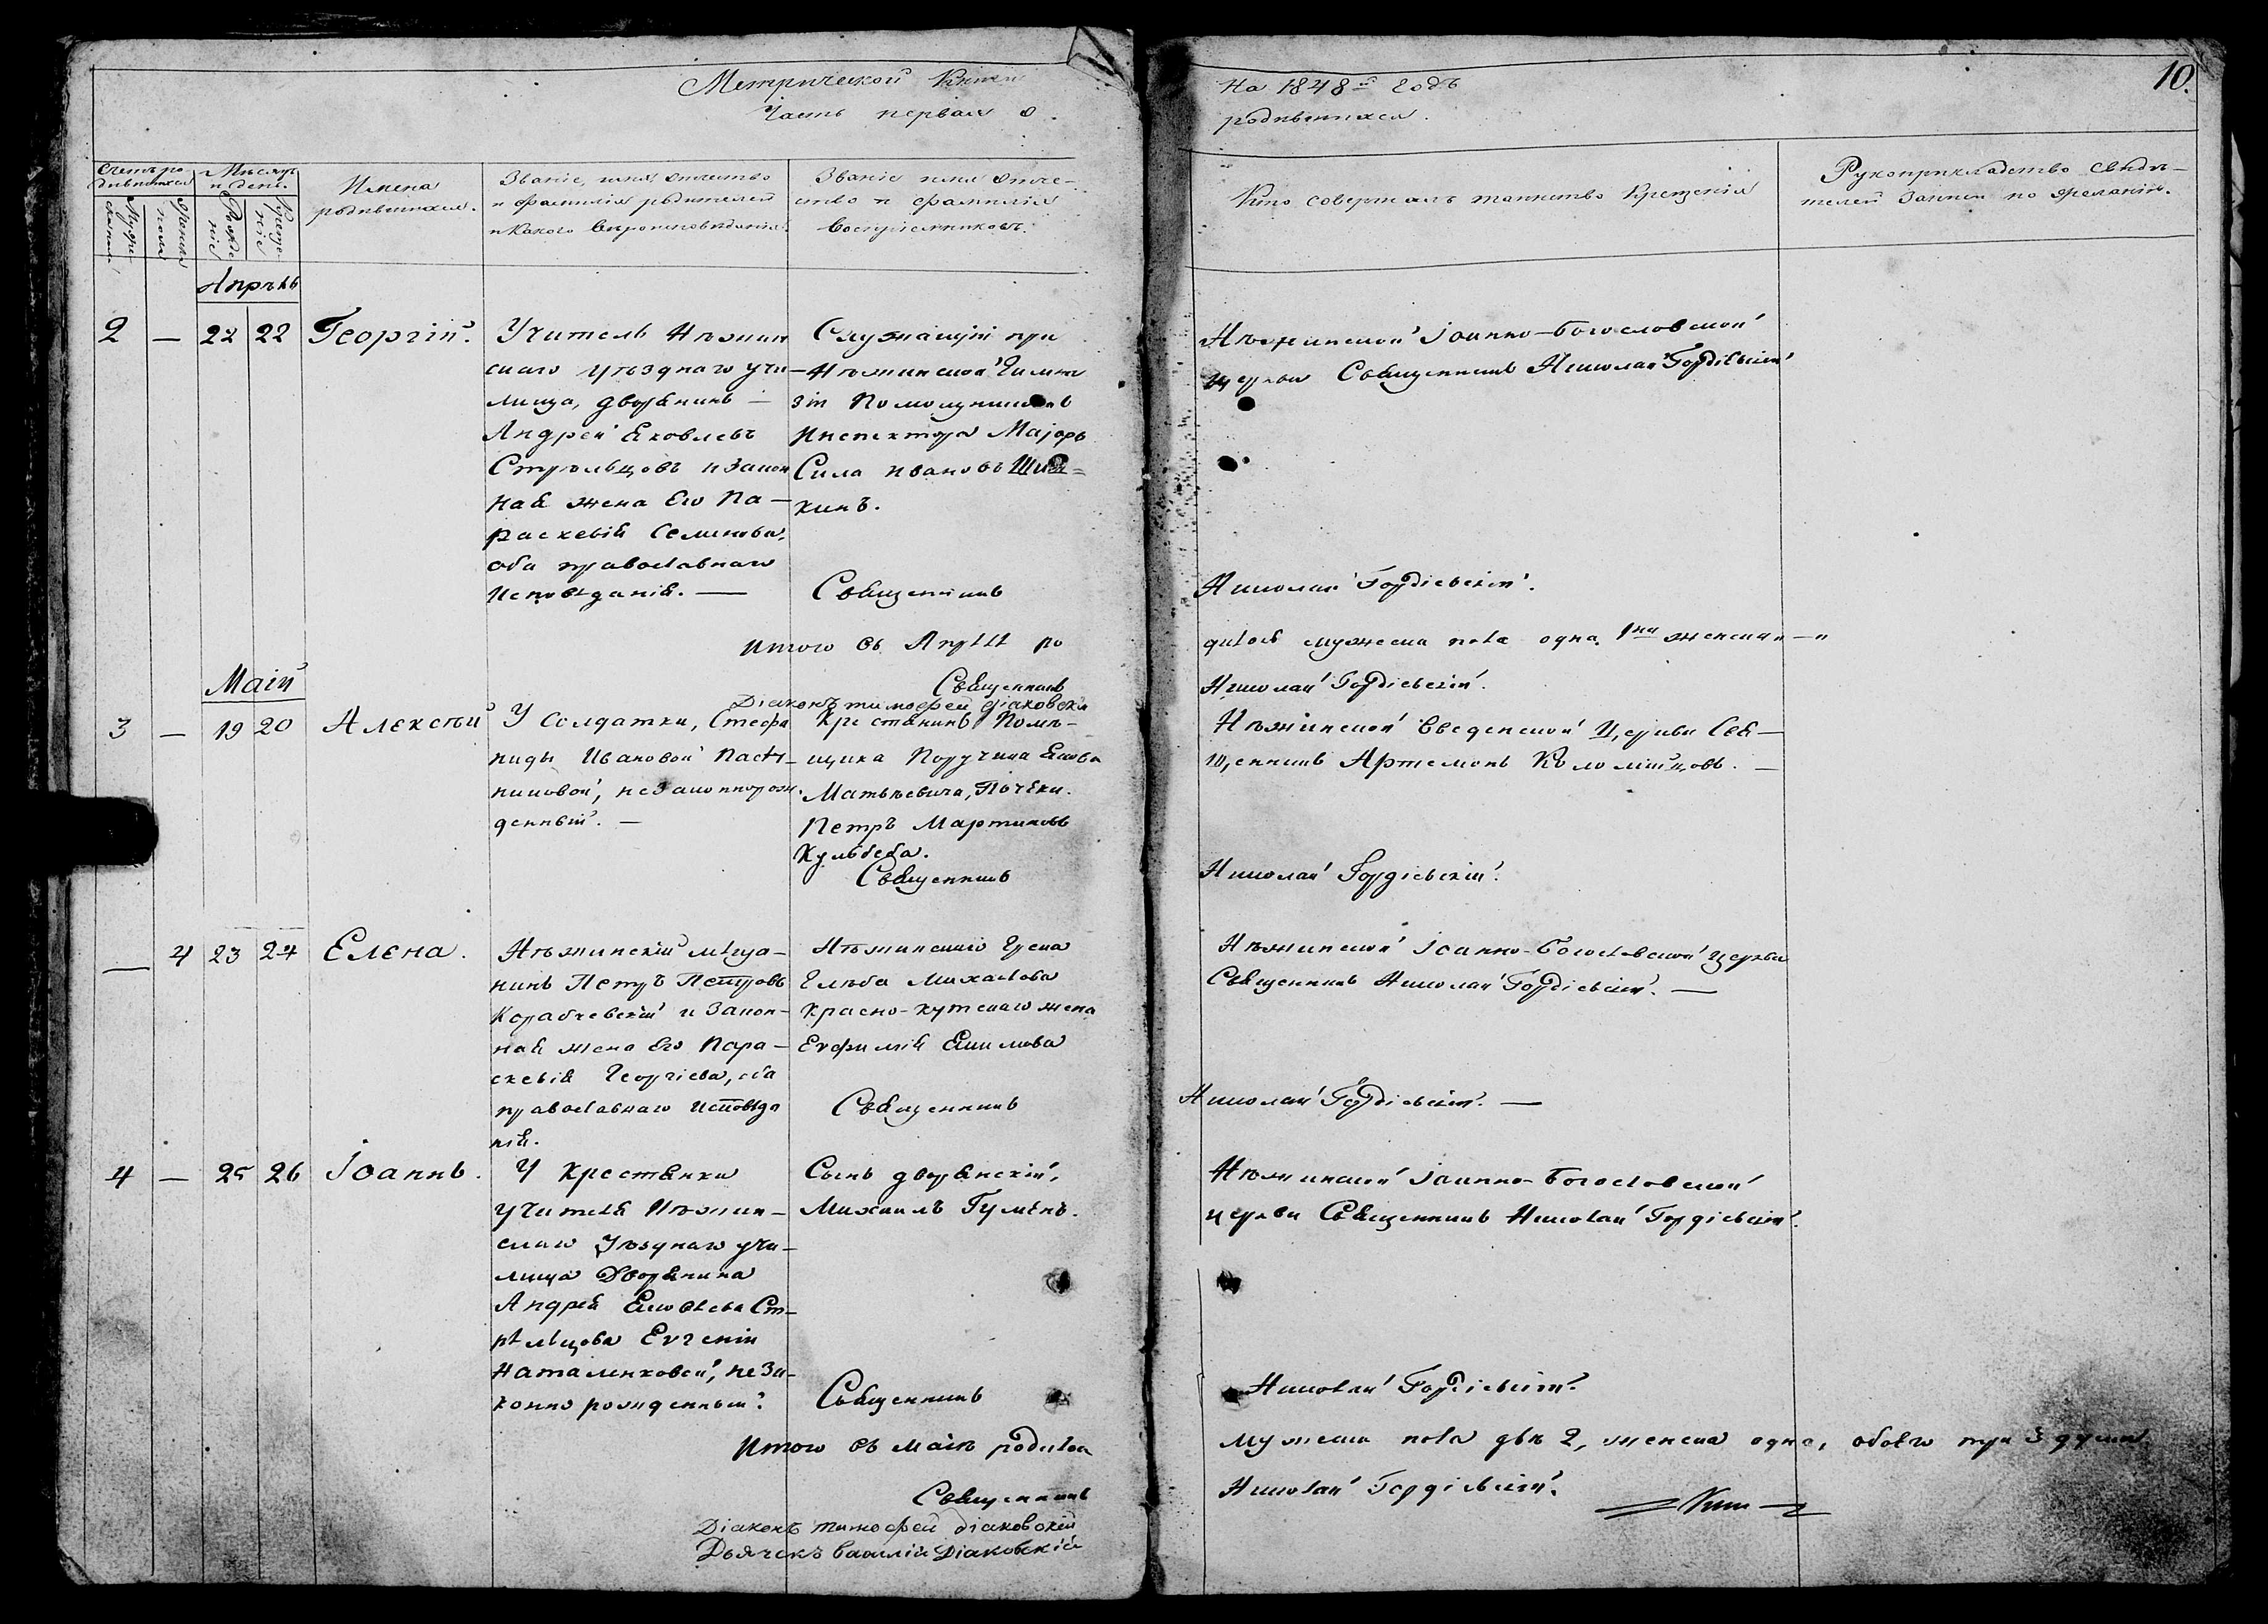 Метрической Книги
Часть первая о
На 1848й годъ
родившихся.
10.
Счетъ ро
дившихся
Мѣсяцъ
и день.
Муже
скаго
женска
пола
Рожде
ніе
Креще
ніе
Имена
родившихся.
Званіе, имя, отчество
и фамилія родителей
и какого вѣроисповѣданія.
Званіе имя отче-
ство и фамилія
воспріемниковъ.
Кто совершалъ таинство крещенія
Рукоприкладство свидѣ-
телей записи по желанію.
Апрѣль
2 — 22 22 Георгій.
Учитель Нѣжин
скаго уѣзднаго учи-
лища, дворянинъ —
Андрей Яковлевъ
Стрѣльцовъ и закон
ная жена его Па-
раскевія Семенова,
оба православнаго
исповѣданія. —
Служащій при
Нѣжинской Гимна
зіи Помощникомъ
Инспектора Маjоръ
Сила Ивановъ
кинъ.
Священникъ
Нѣжинской Іоанно-Богословской
церкви Священникъ Николай Гордіевскій
Николай Гордіевскій.
Итого въ Апрѣлѣ ро
дилось мужеска пола одна 1на женска „—„
Священникъ
Николай Гордіевскій.
Діаконъ тимофей діаковскій
Маій
3 — 19 20 Алексѣй
У Солдатки, Стефа
ниды Ивановой
незаконнорож
денный. —
Крестянинъ Помѣ-
щика Поручика Якова
Матвѣевича, Почеки.
Петръ Мартиновъ
Кульбеба.
Священникъ
Нѣжинской Введенской Церкви Свя-
щенникъ Артемонъ Коломійцовъ. —
Николай Гордіевскій.
— 4 23 24 Елена.
Нѣжинскій мѣща-
нинъ Петръ Петровъ
Корабчевскій и закон-
ная жена его Пара-
скевія Георгіева, оба
православнаго исповѣда
нія.
Нѣжинскаго Грека
Глѣба Михайлова
Красно-кутскаго жена
Евфимія Якимова
Священникъ
Нѣжинской Іоанно-Богословской церкви
Священникъ Николай Гордіевскій. —
Николай Гордіевскій. —
4 — 25 26 Іоаннъ.
У Крестянки
учителя Нѣжин-
скаго Уѣзднаго учи-
лища Дворянина
Андрея Яковлева Ст-
рѣльцова Евгеніи
Наталенковой, неза-
конно рожденный.
Сынъ дворянскій,
Михаилъ Гуменъ.
Священникъ
Нѣжинской Іоанно-Богословской
церкви Священникъ Николай Гордіевскій.
Николай Гордіевскій.
Итого въ маіѣ родилось
мужеска пола двѣ 2, женска одна, обоего три 3 души.
Священникъ
Николай Гордіевскій.
Діаконъ тимофей діаковскій
Дьячекъ василій Діаковскій